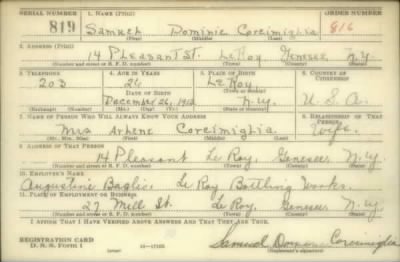 SERIAL NUMBER 1. NAME (Print) ORDER NUMBER
819 Samuel Dominic Corcimiglia 816
(First) (Middle) (Last)
2. ADDRESS (Print)
14 Pleasant St. LeRoy Genesee N.Y.
(Number and street or R. F. D. number) (Town) (County) (State)
3. TELEPHONE 4. AGE IN YEARS 5. PLACE OF BIRTH 6. COUNTRY OF CITIZENSHIP
203 LeRoy
(Town or county)
DATE OF BIRTH
December 26, 1912 N.Y. U.S.A.
(Exchange) (Number) (Mo.) (Day) (Yr.) (State or country)
7. NAME OF PERSON WHO WILL ALWAYS KNOW YOUR ADDRESS 8. RELATIONSHIP OF THAT PERSON
Mrs Arlene Corcimiglia Wife
(Mr., Mrs., Miss) (First) (Middle) (Last)
9. ADDRESS OF THAT PERSON
14 Pleasant Le Roy, Genesee N.Y.
(Number and street or R. F. D. number) (Town) (County) (State)
10. EMPLOYER'S NAME
Augustine Le Roy Bottling Works.
11. PLACE OF EMPLOYMENT OR BUSINESS
27 Mill St. LeRoy, Genesee N.Y.
(Number and street or R. F. D. number) (Town) (County) (State)
I AFFIRM THAT I HAVE VERIFIED ABOVE ANSWERS AND THAT THEY ARE TRUE.
REGISTRATION CARD
D. S. S. FORM 1 Samuel Corcimiglia
(Registrant's signature)